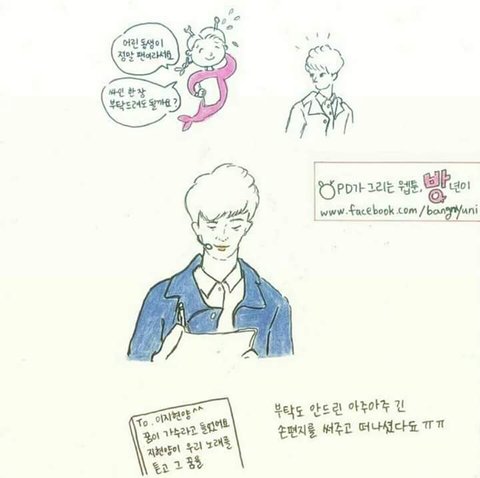 어린 동생이
정말 팬이라서요
싸인 한 장
부탁드려도 될까요?
PD가 그리는 웹툰, 방년이
www.facebook.com/bangnyuni
To. 이지현양^^
꿈이 가수라고 들었어요
지현양이 우리 노래를
듣고 그 꿈을
부탁도 안드린 아주아주 긴
손편지를 써주고 떠나셨다는 ㅠㅠ